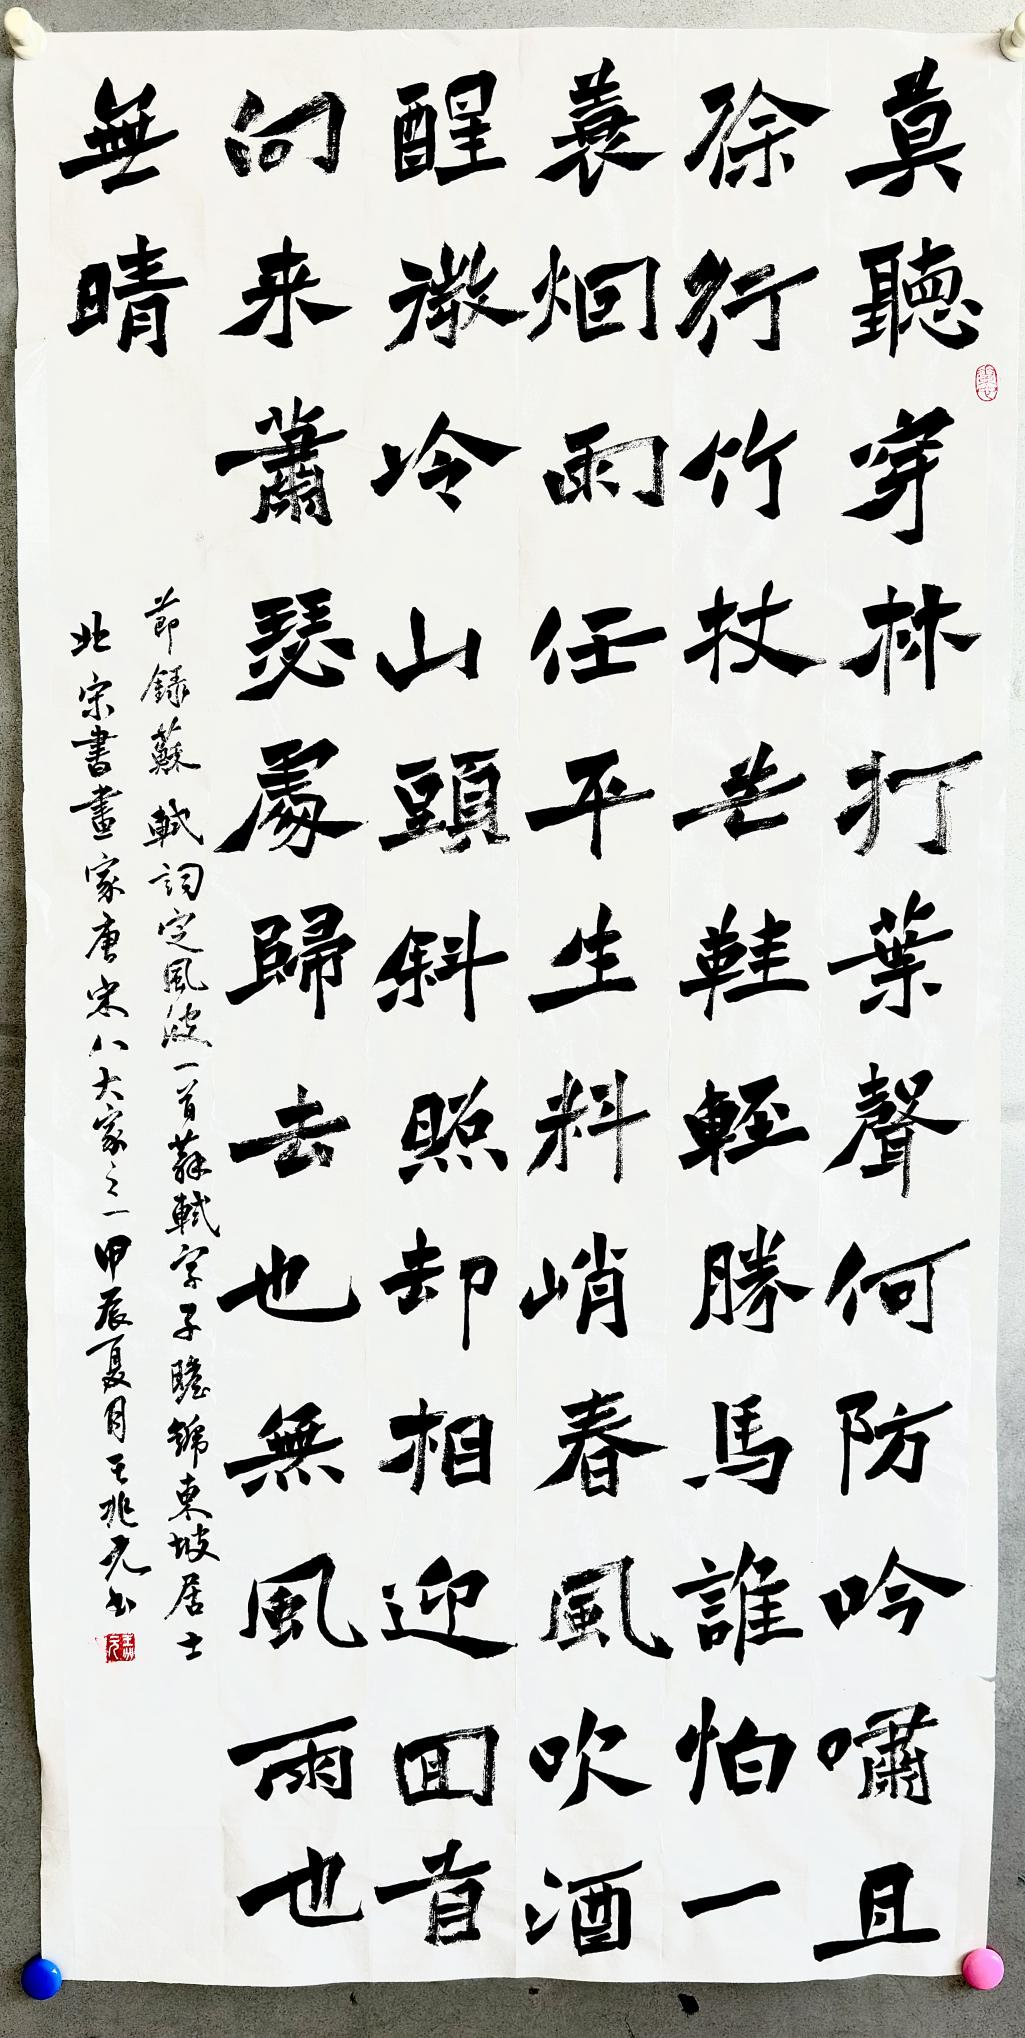 莫聽穿林打葉聲何防吟嘯且
徐行竹杖芒鞋輕勝馬誰怕一
蓑烟雨任平生料峭春風吹酒
醒微冷山頭斜照却相迎回首
向来蕭瑟處歸去也無風雨也
無晴
節録蘇軾詞定風波一首蘇軾字子瞻號東坡居士
北宋書畫家唐宋八大家之一甲辰夏月王兆元书